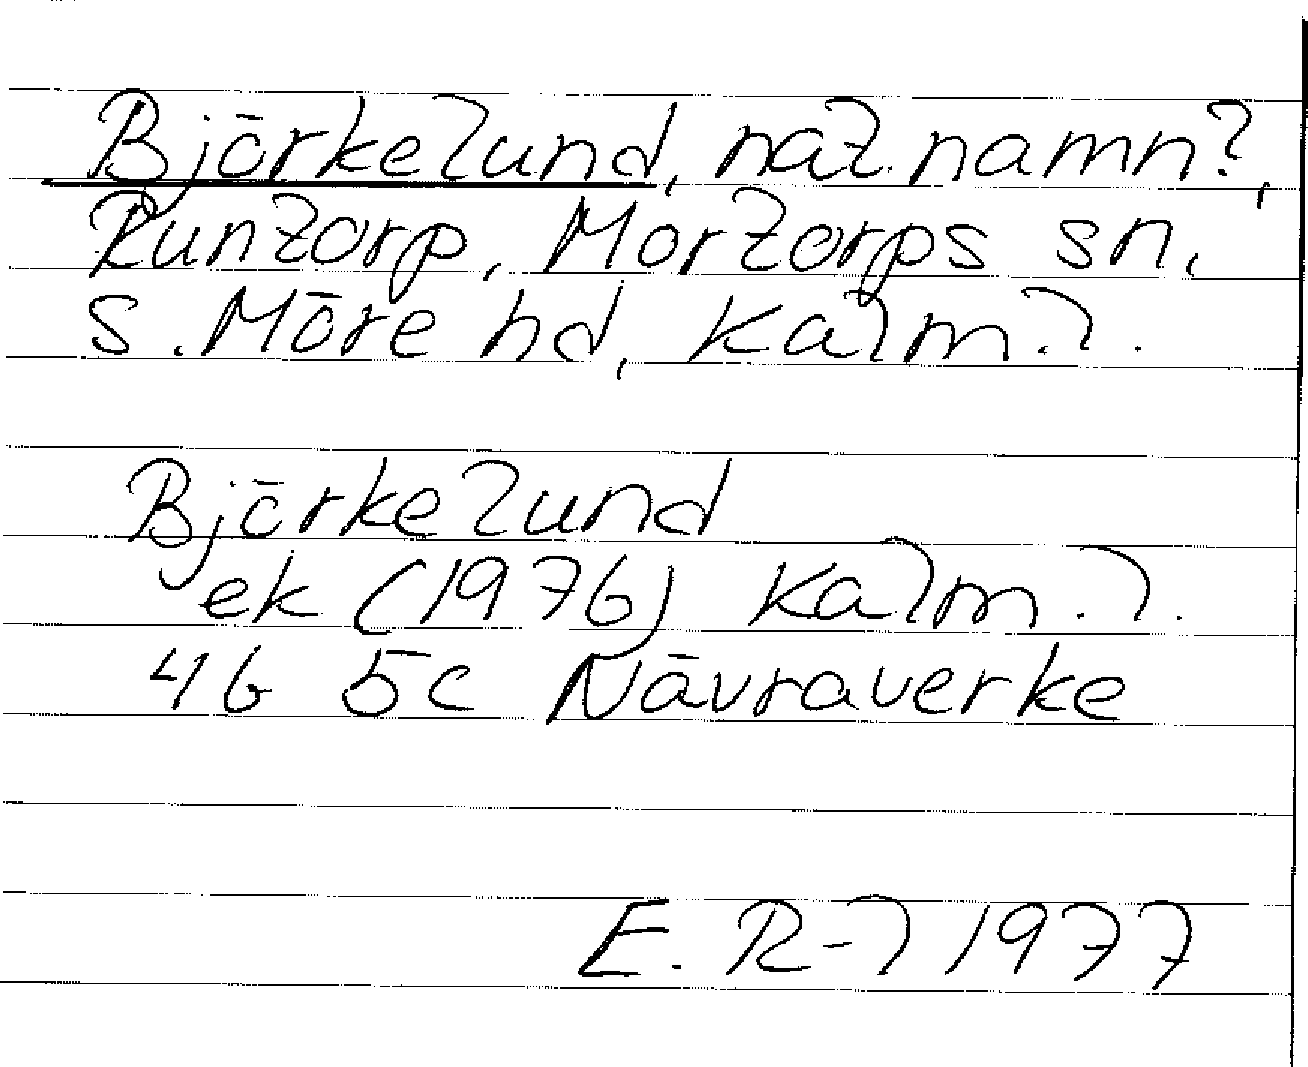 Björkelund, nat. namn?,
Runtorp, Mortorps sn,
S. Möre hd, Kalm. l.
Björkelund
ek (1976) Kalm. l.
4G 5c Nävraverke
E. R-l 1977